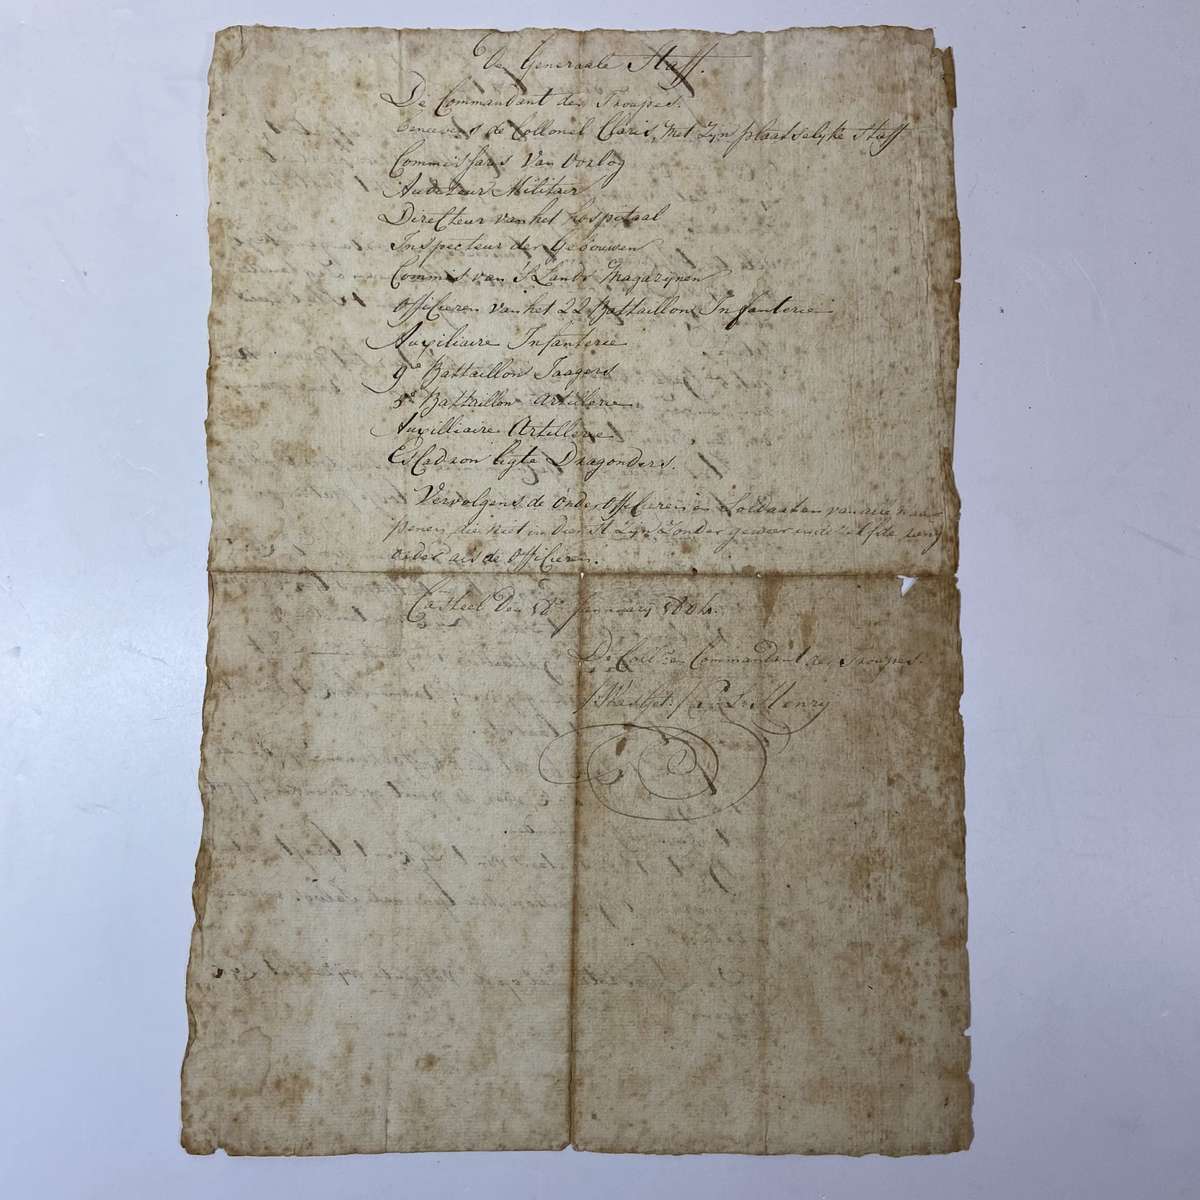 De Generaale Staff.
De Commandant der Troupes.
benevens de Collonel Claris, met zijn plaatselijke Staff
Commissaris van Oorlog
Auditeur Militair
Directeur van het hospitaal
Inspecteur der Gebouwen
Commis van S'Lands Magazijnen
Officieren van het 22 Battaillon Infanterie
Auxiliaire Infanterie
9e Battaillon Jaagers
5e Battaillon Artillerie
Auxilliaire Artillerie
Escadron ligte Dragonders.
Vervolgens de onder Officieren en Soldaaten van alle waa-
penen die niet in dienst zijn zonder geweer in de
order als de Officieren.
Casteel den January
De Coll: en Commandant der Troupes.
Henry